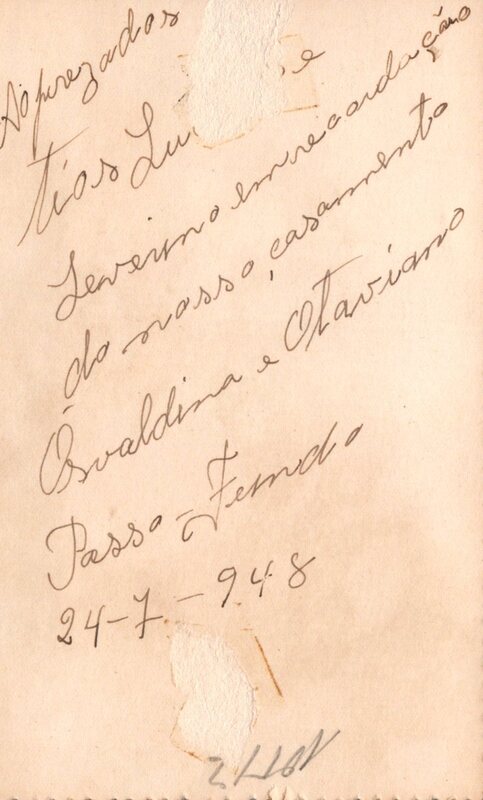 Ao prezados
tios Lu e
Severino em recordação
do nosso casamento
Osvaldina e Otaviano
Passo-Fundo
24-7-948